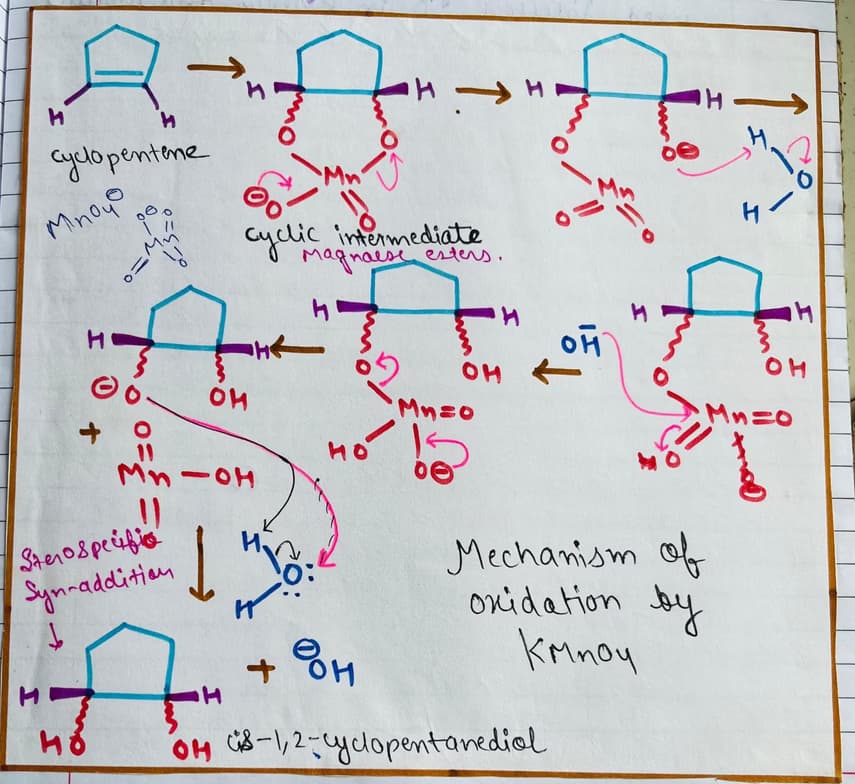 H H
cyclopentene
MnO4 ⊖
O⊖ O
Mn
O O
H H
O O
Mn
⊖O O
cyclic intermediate
Magnaese esters.
H H
O O⊖
Mn
O O
H
O
H
H H
O OH
Mn=O
HO O
⊖
OH̄
H H
O OH
Mn=O
HO O⊖
H H
⊖O OH
+
O
||
Mn—OH
||
O
Sterospecific
Syn-addition
H
O:
H
H H
HO OH
+ ⊖OH
cis-1,2-cyclopentanediol
Mechanism of
oxidation by
KMnO4